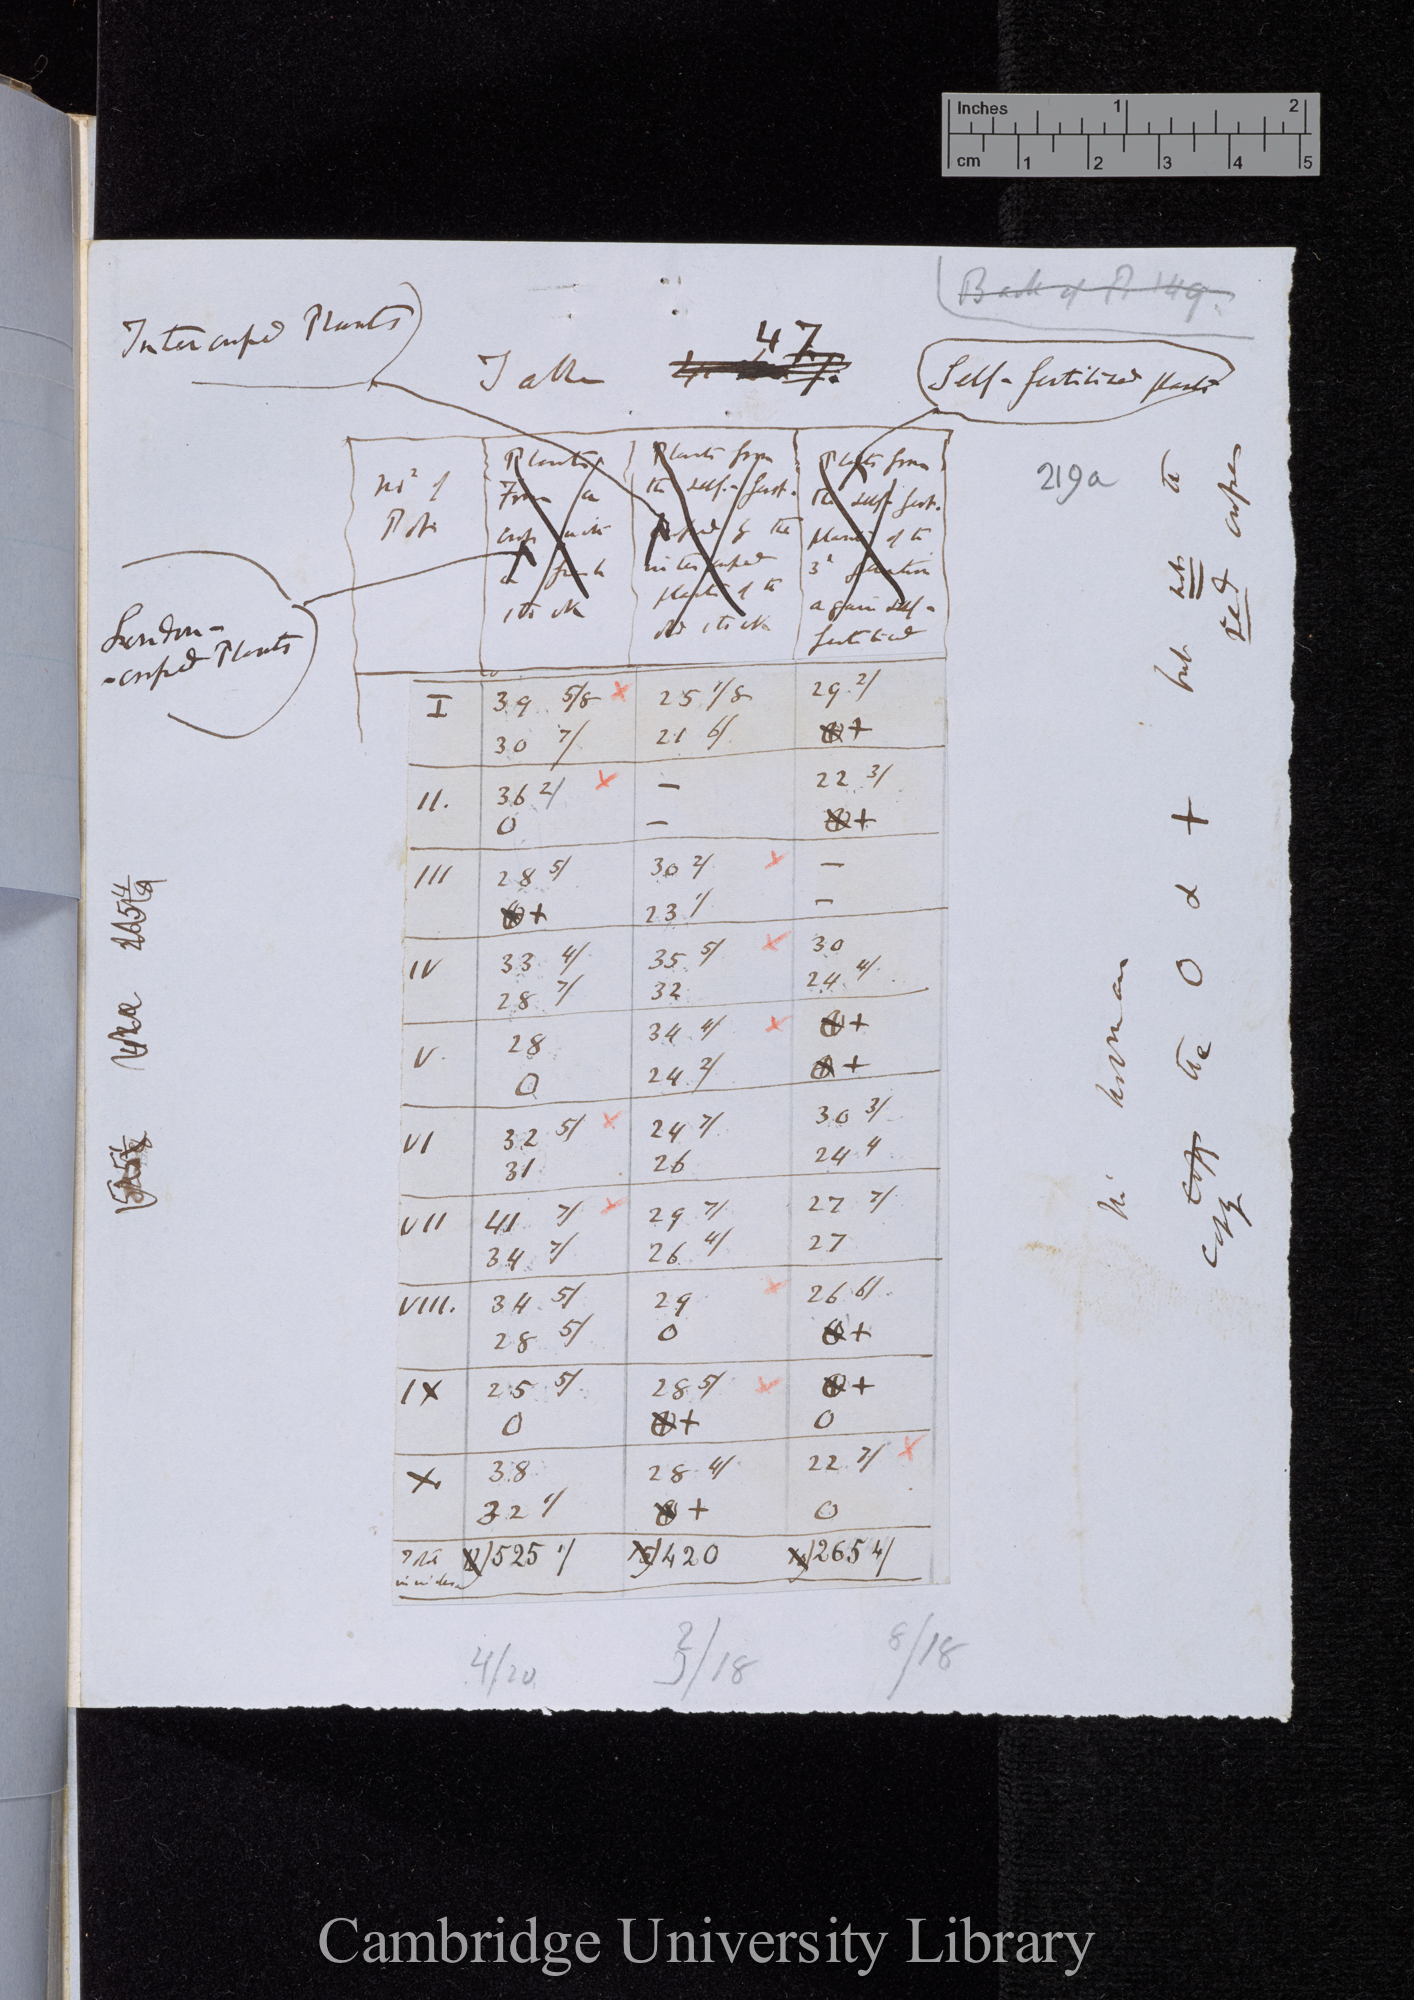 Inches 1 2
cm 1 2 3 4 5
Back of P 149.
Intercrossed Plants
Table 47.
Self-fertilised plants
219a
London-
-crossed Plants
No. of
Pots
Plants
From a
cross with
a fresh
stock
Plants from
the self-fert.
crossed by the
intercrossed
plants of the
old stock
Plants from
the self-fert.
plants of the
3d generation
again self-
fertilised
I 39 5/8 × 25 1/8 29 2/
30 7/ 21 6/ +
II. 36 2/ × — 22 3/
0 — +
III 28 5/ 30 2/ × —
+ 23 1/ —
IV 33 4/ 35 5/ × 30
28 7/ 32 24 4/
V. 28 34 4/ × +
0 24 2/ +
VI 32 5/ × 24 7/ 30 3/
31 26 24 4
VII 41 7/ × 29 7/ 27 7/
34 7/ 26 4/ 27
VIII. 34 5/ 29 × 26 6/
28 5/ 0 +
IX 25 5/ 28 5/ × +
0 + 0
X. 38 28 4/ 22 7/ ×
32 1/ + 0
Total
in inches 525 1/ 420 265 4/
4/20 3/18 8/18
No woman
copy
copy the 0 & + but not the
red crosses
Cambridge University Library